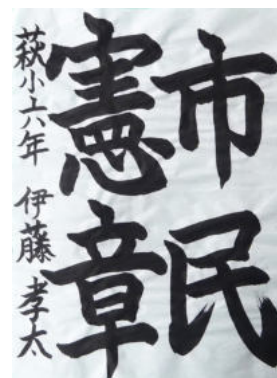 市民
憲章
萩小六年 伊藤孝太